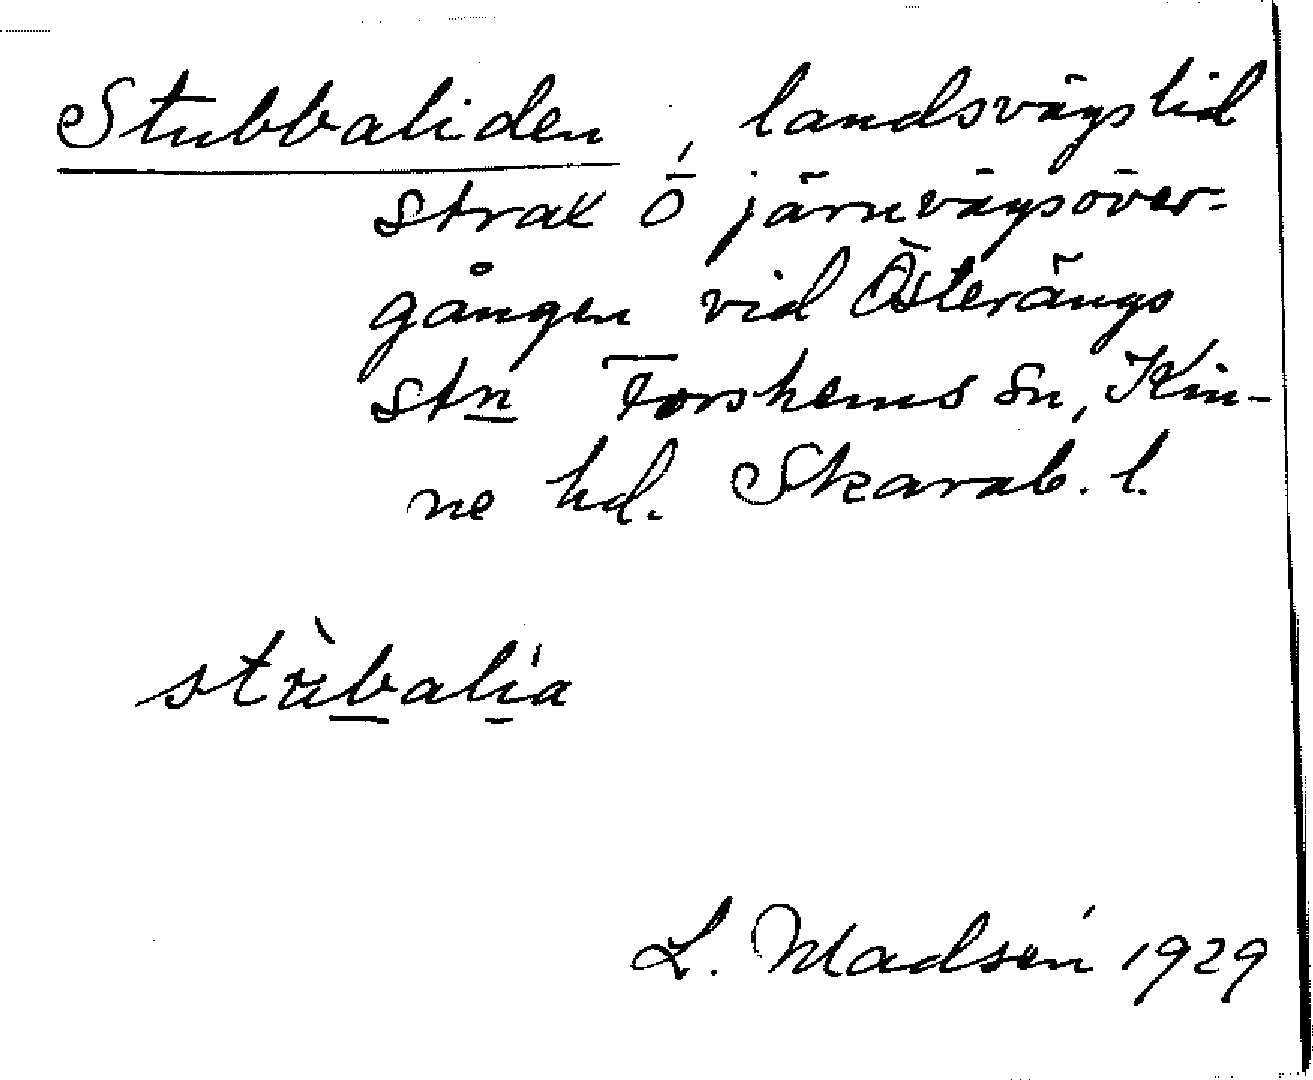 Stubbaliden, landsvägslid
strax Ö järnvägsöver-
gången vid Österängs
stn Forshems sn, Kin-
ne hd. Skarab. l.
stùbalía
L. Madsén 1929